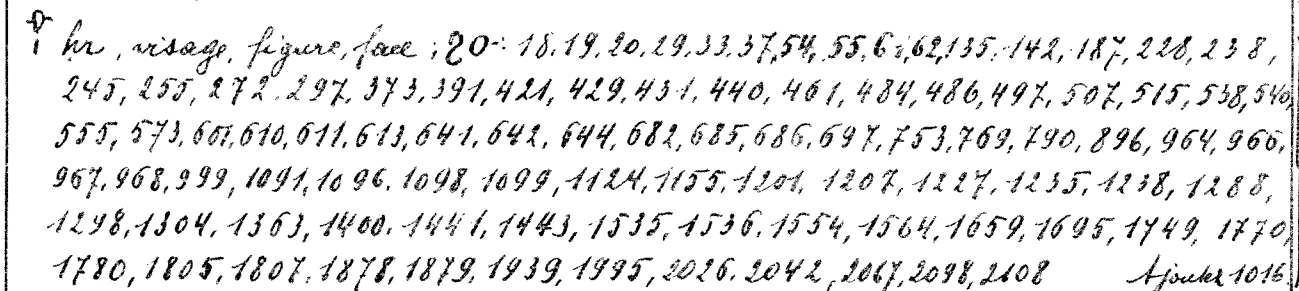 𓁷 hr, visage, figure, face; 20: 18.19.20.29.33.37,54,55,6 ,62,135.142,187,228,238,
245,255,272.297.373.391,421,429.431.440,461,484,486,497,507,515,538,540,
555,573,607,610,611.613,641.642.644.682,685,686.697.753,769,790,896,964,966,
967,968,999,1091,1096.1098,1099,1124,1155.1201.1207,1227.1235,1238,1288,
1298,1304.1363,1400.1441,1443,1535,1536.1554,1564,1659,1695,1749,1770,
1780,1805,1807.1878,1879,1939,1995,2026.2042,2067,2098,2108 Ajouter 1016.